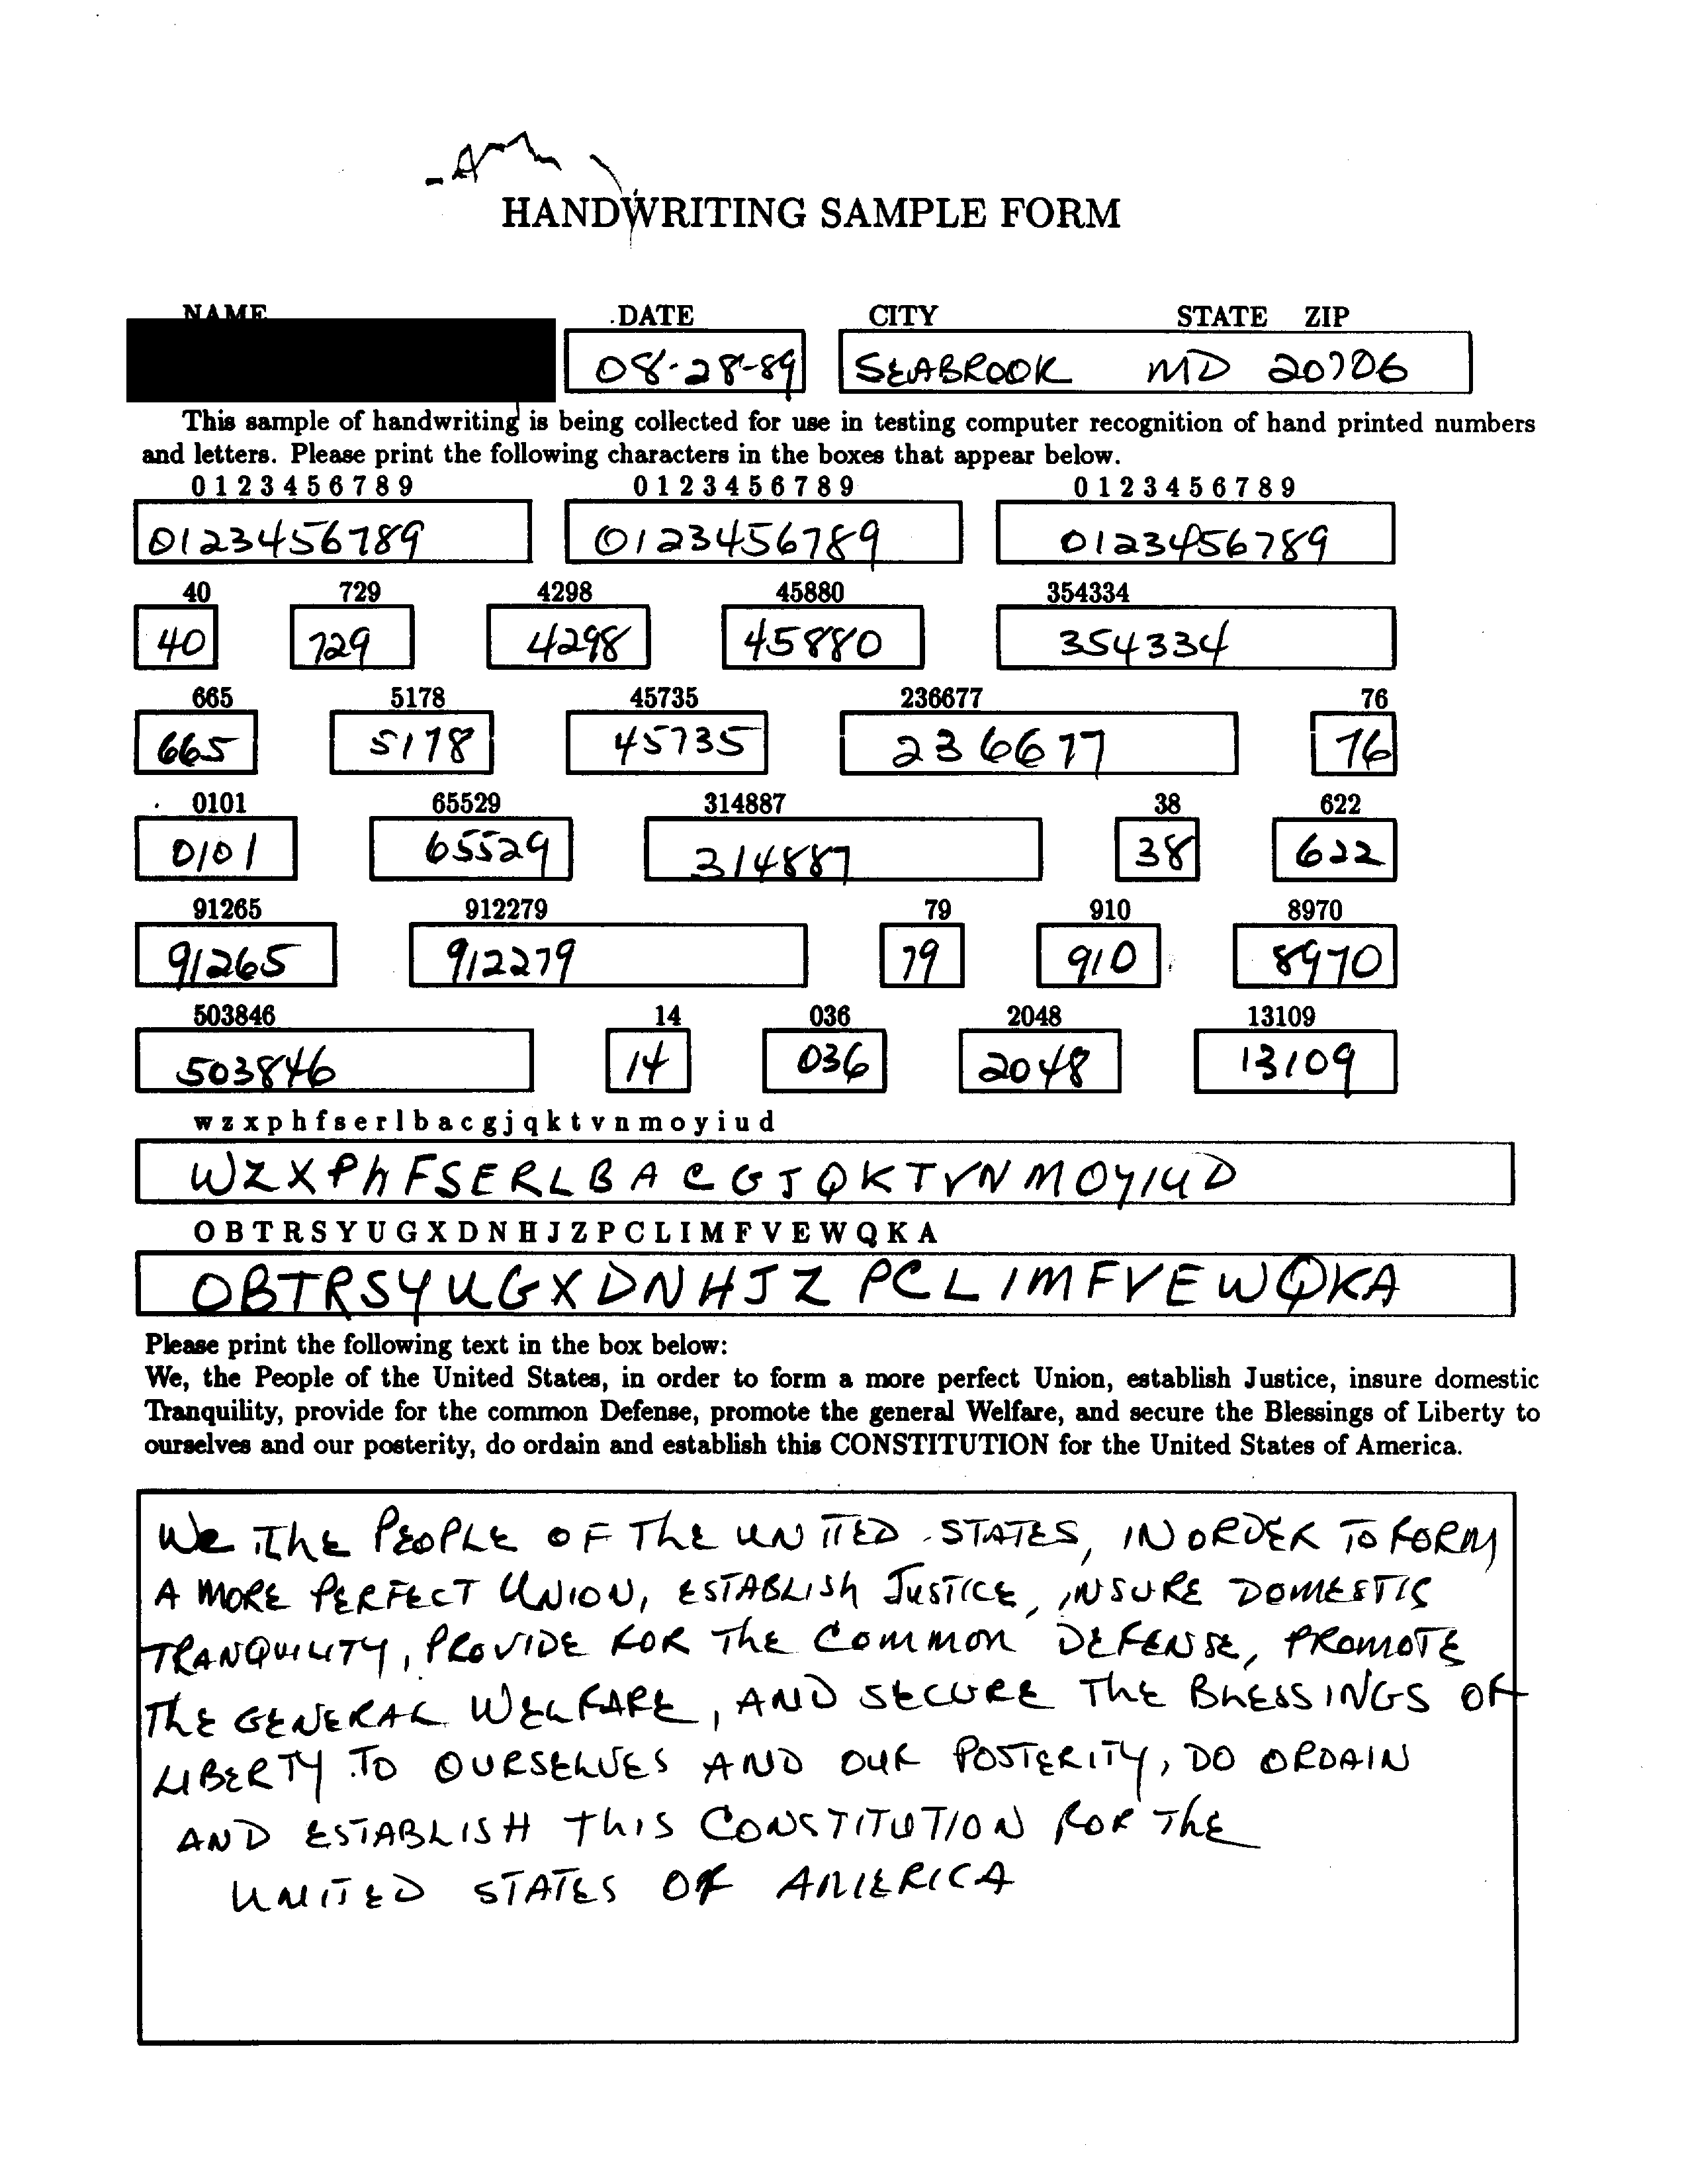 HANDWRITING SAMPLE FORM
NAME DATE CITY STATE ZIP
08-28-89 SEABROOK MD 20706
This sample of handwriting is being collected for use in testing computer recognition of hand printed numbers
and letters. Please print the following characters in the boxes that appear below.
0 1 2 3 4 5 6 7 8 9 0 1 2 3 4 5 6 7 8 9 0 1 2 3 4 5 6 7 8 9
0123456789 0123456789 0123456789
40 729 4298 45880 354334
40 729 4298 45880 354334
665 5178 45735 236677 76
665 5178 45735 236677 76
0101 65529 314887 38 622
0101 65529 314887 38 622
91265 912279 79 910 8970
91265 912279 79 910 8970
503846 14 036 2048 13109
503846 14 036 2048 13109
w z x p h f s e r l b a c g j q k t v n m o y i u d
W Z X P h F S E R L B A C G J Q K T V N M O Y I U D
O B T R S Y U G X D N H J Z P C L I M F V E W Q K A
O B T R S Y U G X D N H J Z P C L I M F V E W Q K A
Please print the following text in the box below:
We, the People of the United States, in order to form a more perfect Union, establish Justice, insure domestic
Tranquility, provide for the common Defense, promote the general Welfare, and secure the Blessings of Liberty to
ourselves and our posterity, do ordain and establish this CONSTITUTION for the United States of America.
We ThE PEOPLE OF ThE UNITED STATES, IN ORDER TO FORM
A MORE PERFECT UNION, ESTABLISh JUSTICE, INSURE DOMESTIC
TRANQUILITY, PROVIDE FOR ThE COMMON DEFENSE, PROMOTE
ThE GENERAL WELFARE, AND SECURE ThE BLESSINGS OF
LIBERTY TO OURSELVES AND OUR POSTERITY, DO ORDAIN
AND ESTABLISH ThIS CONSTITUTION FOR ThE
UNITED STATES OF AMERICA